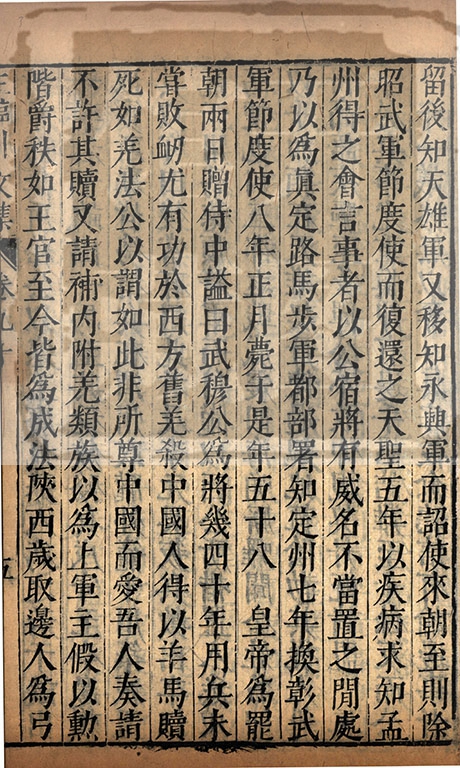 留後知天雄軍又移知永興軍而詔使來朝至則除
昭武軍節度使而復還之天聖五年以疾病求知孟
州得之會言事者以公宿將有威名不當置之閒處
乃以為眞定路馬步軍都部署知定州七年換彰武
軍節度使八年正月薨于是年五十八 皇帝為罷
朝兩日贈侍中謚曰武穆公為將幾四十年用兵未
嘗敗衂尤有功於西方舊羌殺中國人得以羊馬贖
死如羌法公以謂如此非所尊中國而愛吾人奏請
不許其贖又請補內附羌類族以為上軍主假以勳
階爵秩如王官至今皆為成法陝西歲取邊人為弓
卷九十
五